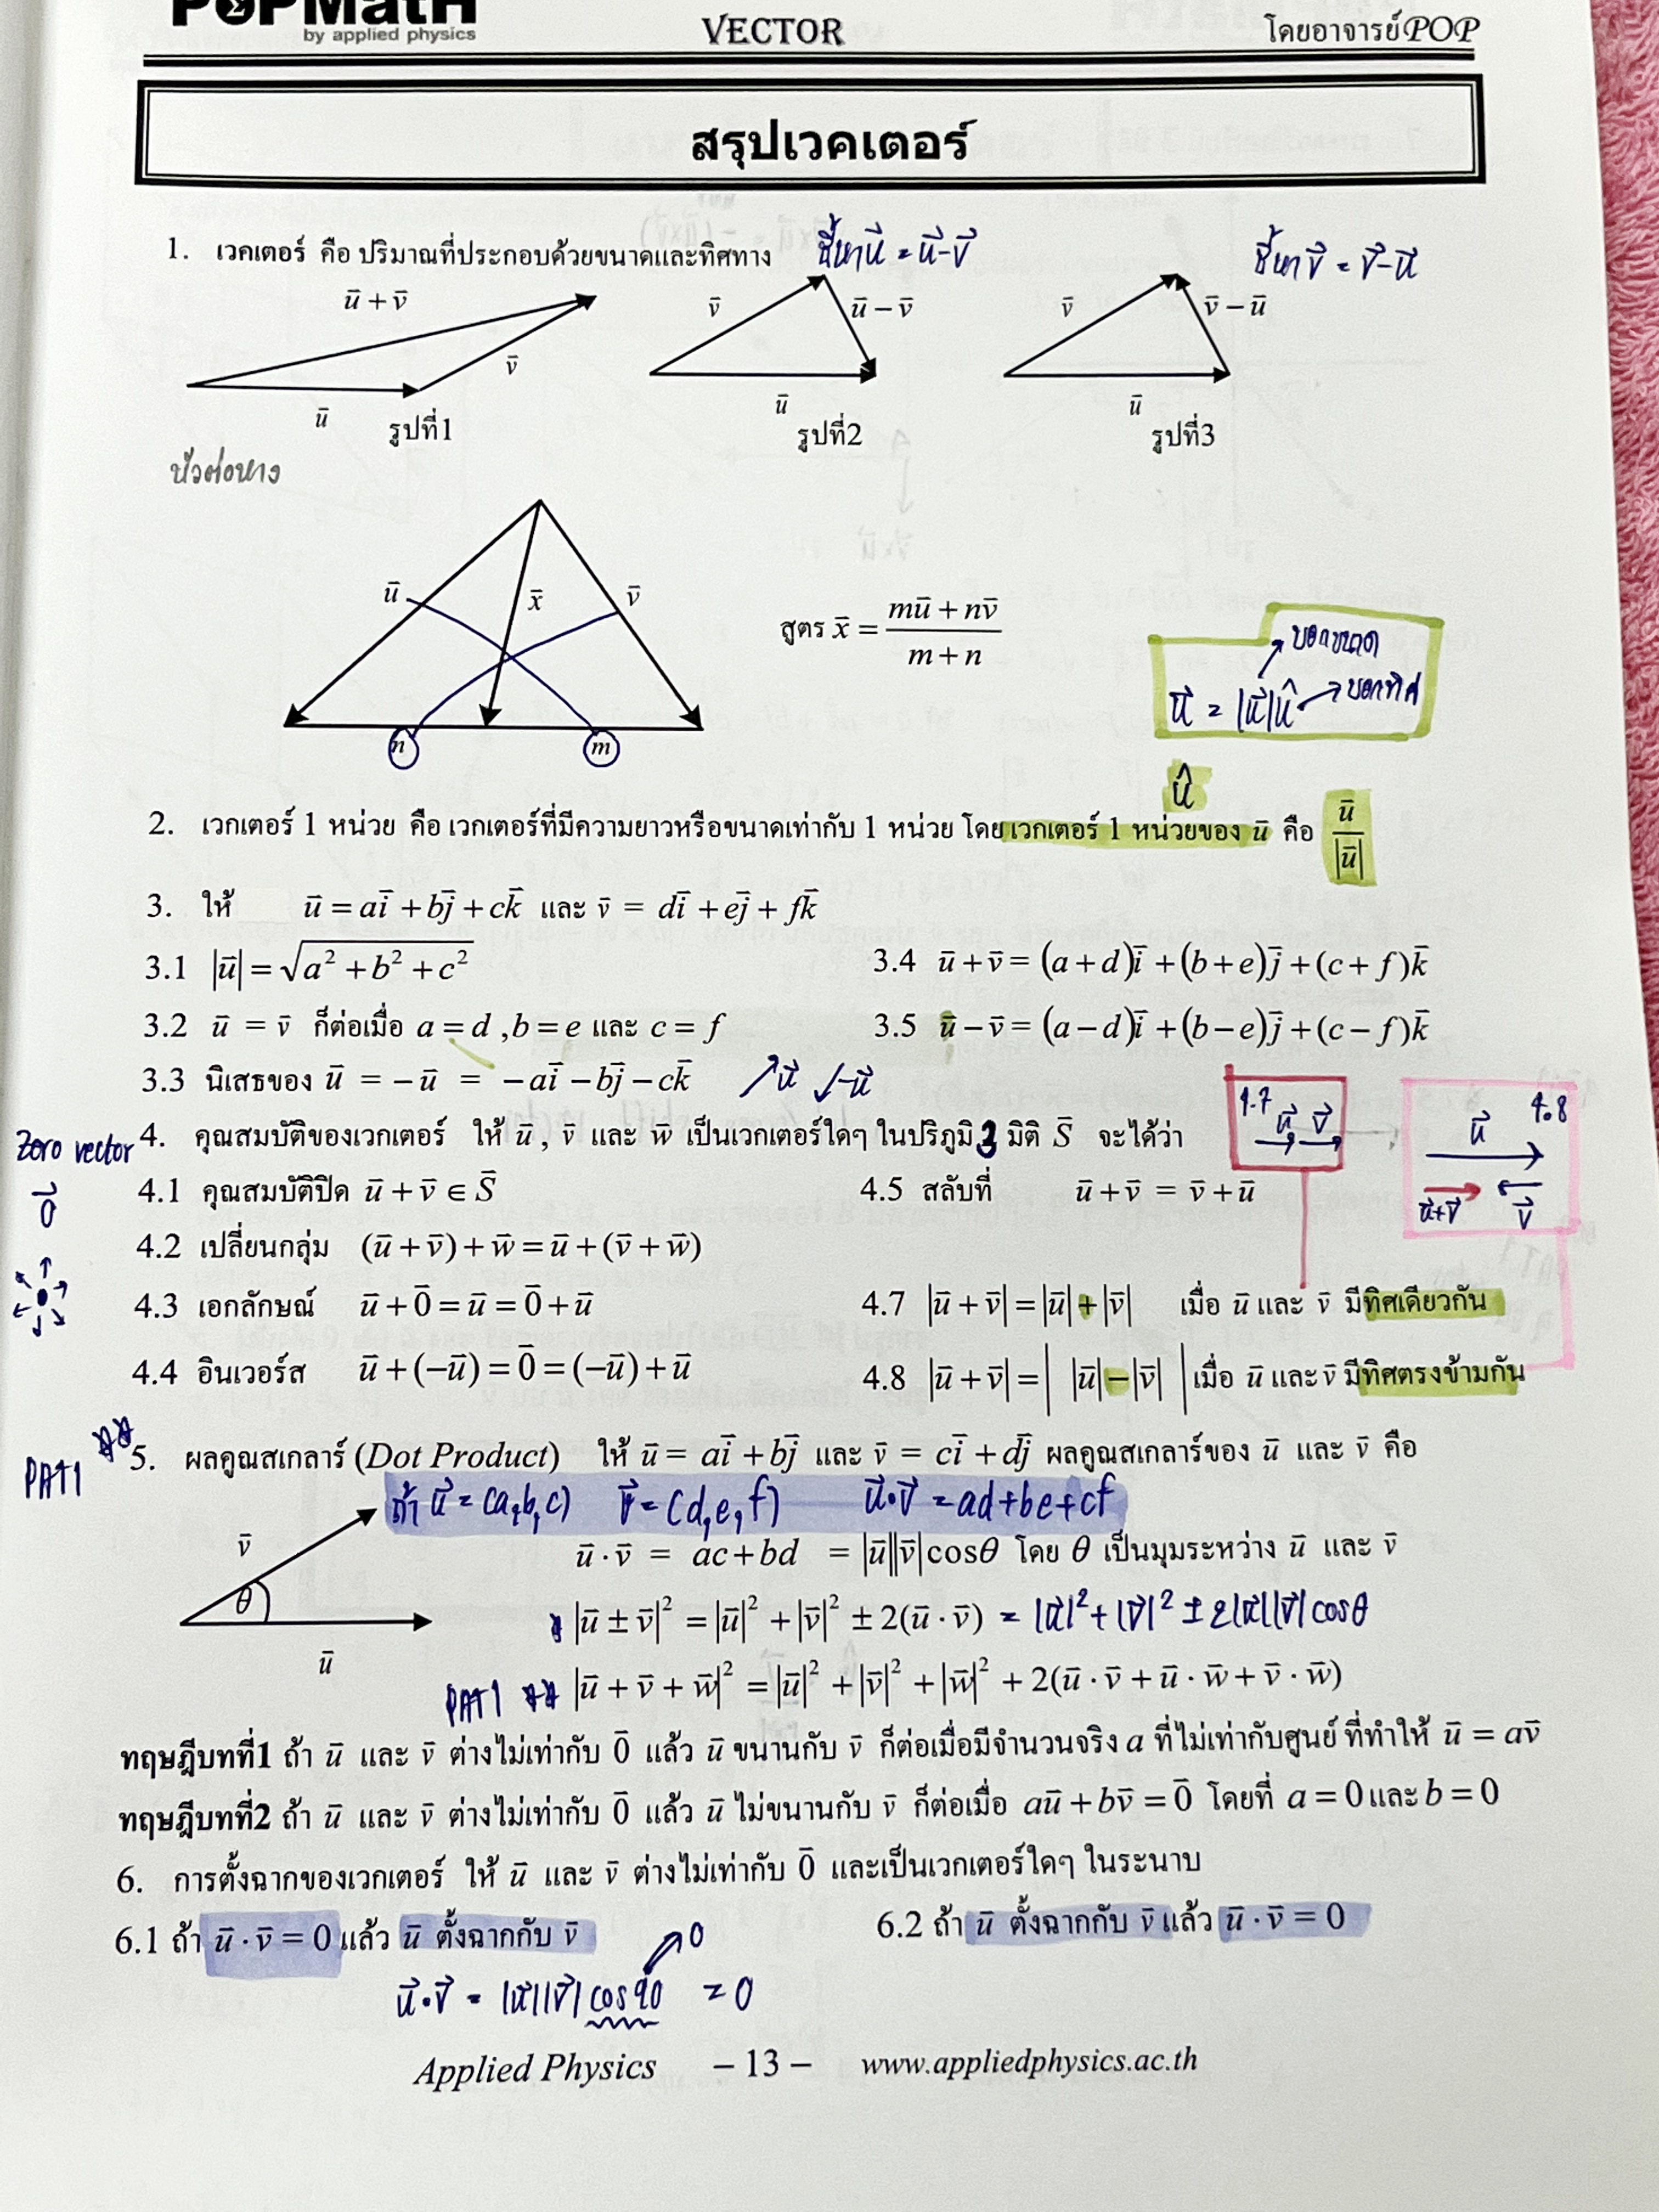 POPMatH
by applied physics
VECTOR
โดยอาจารย์POP
สรุปเวคเตอร์
1. เวคเตอร์ คือ ปริมาณที่ประกอบด้วยขนาดและทิศทาง
ชี้หา u⃗ = u⃗-v⃗
ชี้หา v⃗ = v⃗-u⃗
ū + v̄
v̄
ū
รูปที่1
v̄
ū − v̄
ū
รูปที่2
v̄
v̄ − ū
ū
รูปที่3
หัวต่อหาง
ū
x̄
v̄
n
m
สูตร x̄ = (mū + nv̄)/(m + n)
บอกขนาด
u⃗ = |u⃗|û บอกทิศ
û
2. เวกเตอร์ 1 หน่วย คือ เวกเตอร์ที่มีความยาวหรือขนาดเท่ากับ 1 หน่วย โดยเวกเตอร์ 1 หน่วยของ ū คือ ū/|ū|
3. ให้ ū = aī + bj̄ + ck̄ และ v̄ = dī + ej̄ + fk̄
3.1 |ū| = √(a² + b² + c²)
3.4 ū + v̄ = (a + d)ī + (b + e)j̄ + (c + f)k̄
3.2 ū = v̄ ก็ต่อเมื่อ a = d , b = e และ c = f
3.5 ū − v̄ = (a − d)ī + (b − e)j̄ + (c − f)k̄
3.3 นิเสธของ ū = −ū = −aī − bj̄ − ck̄ u⃗ -u⃗
4.7 u⃗ v⃗
4.8 u⃗
u⃗+v⃗ v⃗
Zero vector
0⃗
4. คุณสมบัติของเวกเตอร์ ให้ ū , v̄ และ w̄ เป็นเวกเตอร์ใดๆ ในปริภูมิ 3 มิติ S̄ จะได้ว่า
4.1 คุณสมบัติปิด ū + v̄ ∈ S̄
4.5 สลับที่ ū + v̄ = v̄ + ū
4.2 เปลี่ยนกลุ่ม (ū + v̄) + w̄ = ū + (v̄ + w̄)
4.3 เอกลักษณ์ ū + 0̄ = ū = 0̄ + ū
4.7 |ū + v̄| = |ū| + |v̄| เมื่อ ū และ v̄ มีทิศเดียวกัน
4.4 อินเวอร์ส ū + (−ū) = 0̄ = (−ū) + ū
4.8 |ū + v̄| = | |ū| − |v̄| | เมื่อ ū และ v̄ มีทิศตรงข้ามกัน
PAT1
5. ผลคูณสเกลาร์ (Dot Product) ให้ ū = aī + bj̄ และ v̄ = cī + dj̄ ผลคูณสเกลาร์ของ ū และ v̄ คือ
ถ้า u⃗ = (a,b,c) v⃗ = (d,e,f) u⃗•v⃗ = ad+be+cf
v̄
θ
ū
ū · v̄ = ac + bd = |ū||v̄|cosθ โดย θ เป็นมุมระหว่าง ū และ v̄
|ū ± v̄|² = |ū|² + |v̄|² ± 2(ū · v̄) = |u⃗|²+|v⃗|² ± 2|u⃗||v⃗| cosθ
PAT1 |ū + v̄ + w̄|² = |ū|² + |v̄|² + |w̄|² + 2(ū · v̄ + ū · w̄ + v̄ · w̄)
ทฤษฎีบทที่1 ถ้า ū และ v̄ ต่างไม่เท่ากับ 0̄ แล้ว ū ขนานกับ v̄ ก็ต่อเมื่อมีจำนวนจริง a ที่ไม่เท่ากับศูนย์ ที่ทำให้ ū = av̄
ทฤษฎีบทที่2 ถ้า ū และ v̄ ต่างไม่เท่ากับ 0̄ แล้ว ū ไม่ขนานกับ v̄ ก็ต่อเมื่อ aū + bv̄ = 0̄ โดยที่ a = 0 และ b = 0
6. การตั้งฉากของเวกเตอร์ ให้ ū และ v̄ ต่างไม่เท่ากับ 0̄ และเป็นเวกเตอร์ใดๆ ในระนาบ
6.1 ถ้า ū · v̄ = 0 แล้ว ū ตั้งฉากกับ v̄
6.2 ถ้า ū ตั้งฉากกับ v̄ แล้ว ū · v̄ = 0
0
u⃗•v⃗ = |u⃗||v⃗| cos90 = 0
Applied Physics − 13 − www.appliedphysics.ac.th